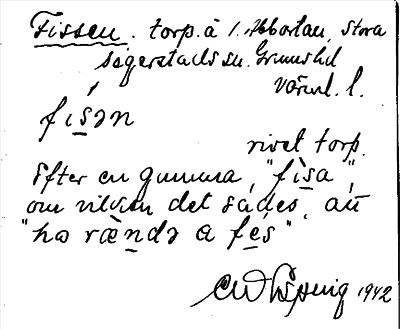 Fissen. torp. å 1. Abbortan, Stora
Segerstads sn. Grums hd
Värml. l.
fisən
rivet torp.
Efter en gumma, "fisa",
om vilken det sades, att
"ho rändə å fes"
1942